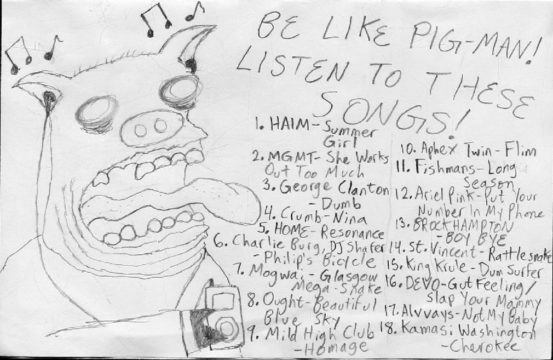 BE LIKE PIG-MAN!
LISTEN TO THESE
SONGS!
1. HAIM-Summer
Girl
2. MGMT-She Works
Out Too Much
3. George Clanton
-Dumb
4. Crumb-Nina
5. HOME-Resonance
6. Charlie Burg, DJ Shafer
-Philip's Bicycle
7. Mogwai-Glasgow
Mega-Snake
8. Ought-Beautiful
Blue Sky
9. Mild High Club
-Homage
10. Aphex Twin-Flim
11. Fishmans-Long
Season
12. Ariel Pink-Put Your
Number In My Phone
13. BROCKHAMPTON
-BOY BYE
14. St. Vincent-Rattlesnake
15. King Krule-Dum Surfer
16. DEVO-Gut Feeling/
Slap Your Mammy
17. Alvvays-Not My Baby
18. Kamasi Washington
-Cherokee